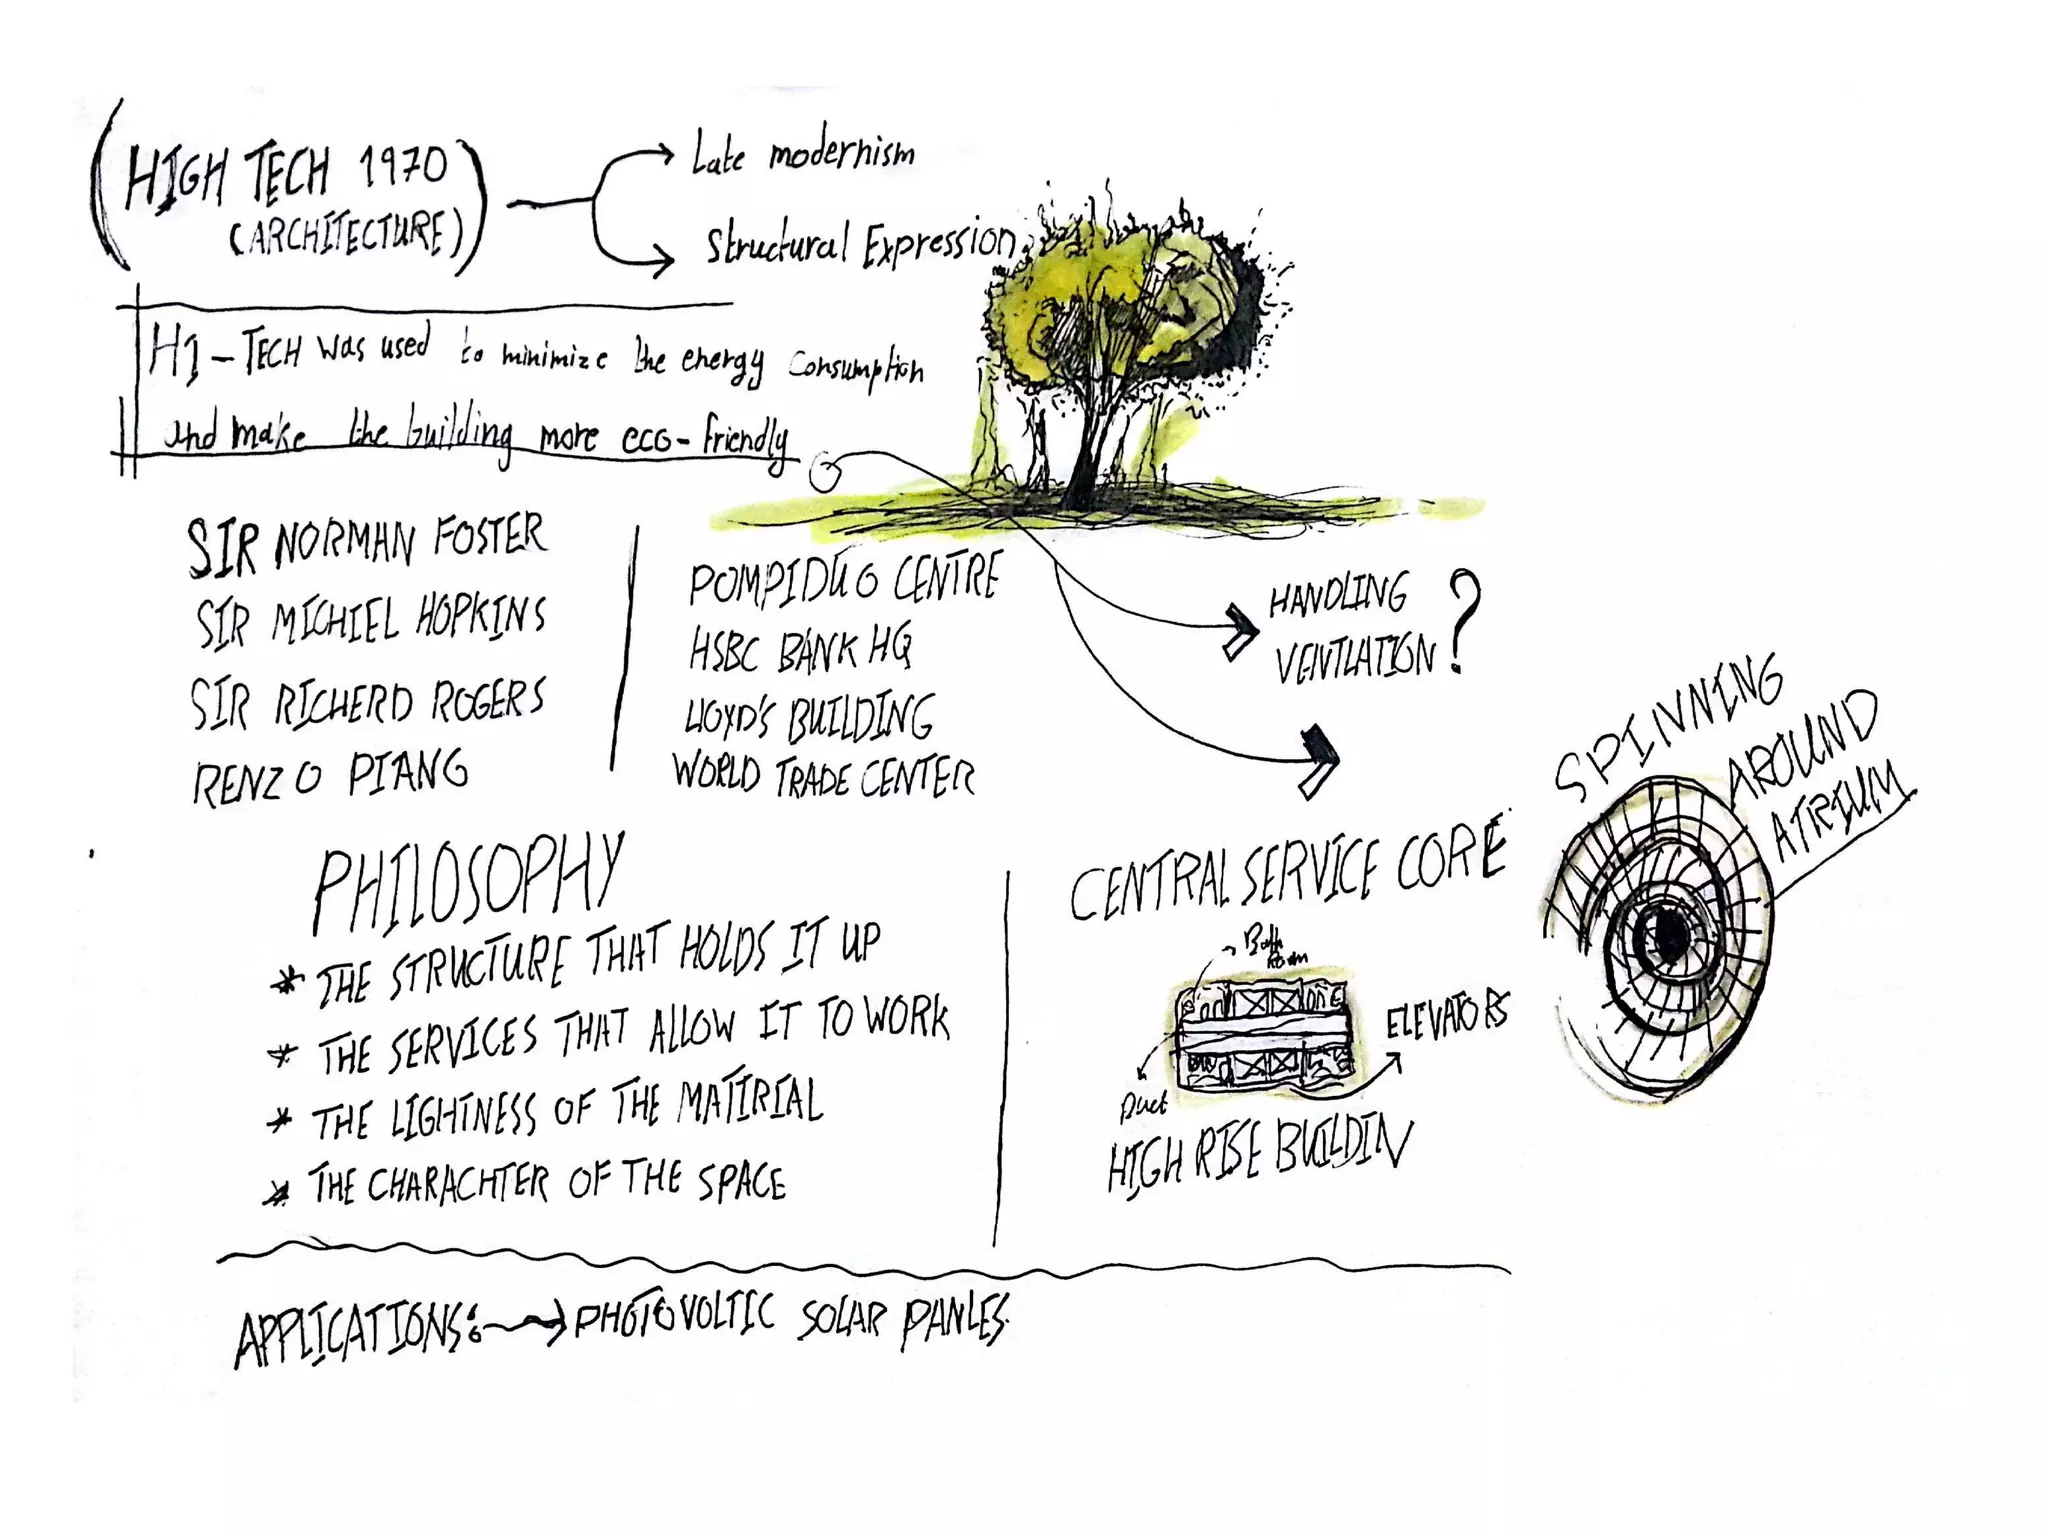 (HIGH TECH 1970
(ARCHITECTURE))
Late modernism
Structural Expression
HI-TECH was used to minimize the energy consumption
and make the building more eco-friendly
SIR NORMAN FOSTER
SIR MICHIEL HOPKINS
SIR RICHERD ROGERS
RENZO PIANG
POMPIDUO CENTRE
HSBC BANK HQ
LLOYD'S BUILDING
WORLD TRADE CENTER
HANDLING
VENTLATION?
SPINNING
AROUND
ATRIUM
PHILOSOPHY
* THE STRUCTURE THAT HOLDS IT UP
* THE SERVICES THAT ALLOW IT TO WORK
* THE LIGHTNESS OF THE MATIRIAL
* THE CHARACHTER OF THE SPACE
CENTRAL SERVICE CORE
Bath
Room
ELEVATORS
Duct
HIGH RISE BUILDIN
APPLICATIONS: PHOTOVOLTIC SOLAR PANLES.